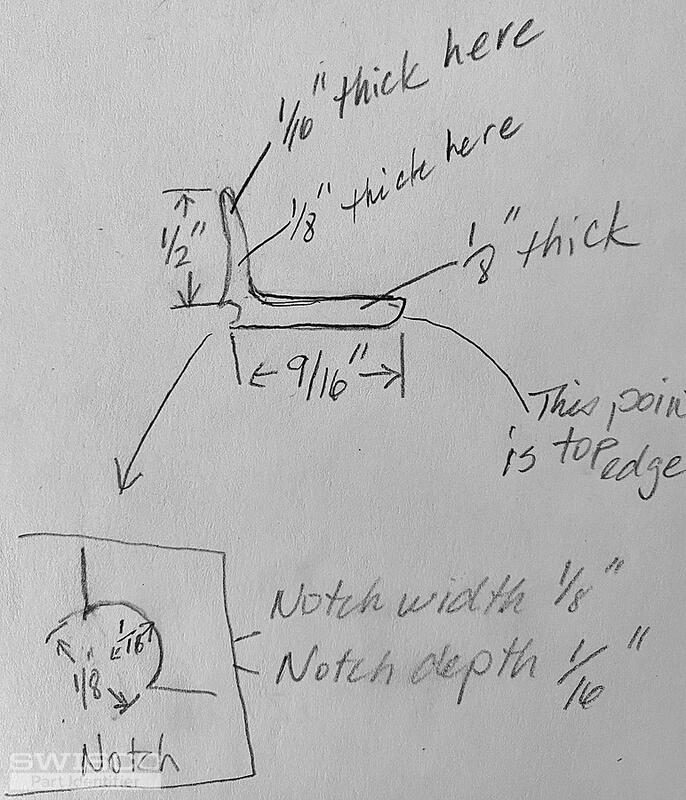 1/16" thick here
1/8" thick here
1/2"
1/8" thick
9/16"
This
is top
edge
Notch width 1/8"
Notch depth 1/16"
1/16
1/8"
Notch
SWISCO
Part Identifier